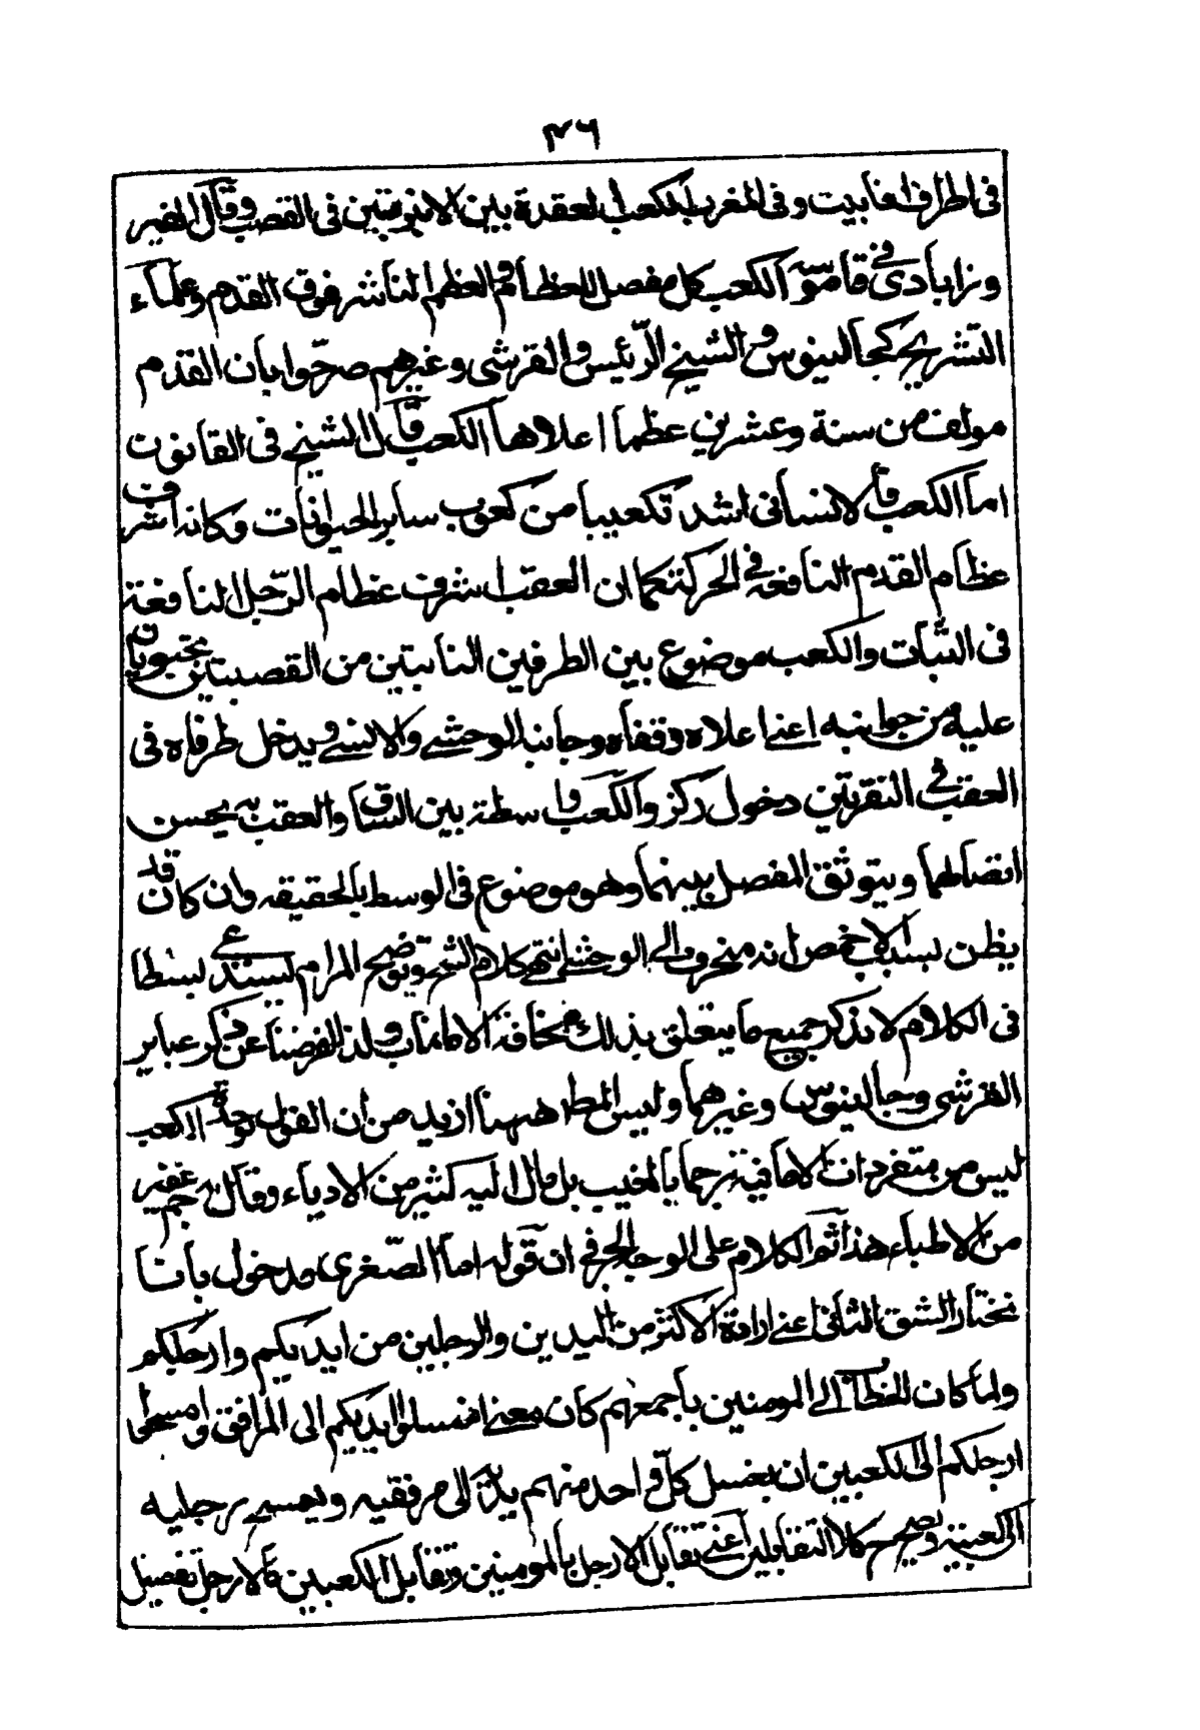 ٤٦
فى اطراف انابيب وفى المغرب الكعب العقدة بين الانبوبتين فى القصب وقال الفير
وزابادى فى قاموسه الكعب كل مفصل للعظام والعظم الناشز فوق القدم وعلماء
التشريح كجالينوس والشيخ الرّئيس والقرشى وغيرهم صرحّوا بان القدم
مولف من ستة وعشرين عظما اعلاها الكعب قال الشيخ فى القانون
اما الكعب فالانسانى اشد تكعيبا من كعوب ساير الحيوانات وكانه اشرف
عظام القدم النافعة فى الحركة كما ان العقب اشرف عظام الرّجل النافعة
فى الثبات والكعب موضوع بين الطرفين الناتيتين من القصبتين يحتويان
عليه من جوانبه اعنى اعلاه وقفاه وجانبه الوحشى والانسى ويدخل طرفاه فى
العقب فى النقرتين دخول ركز والكعب واسطة بين الساق والعقب به يحسن
اتصالهما ويتوثق المفصل بينهما وهو موضوع فى الوسط بالحقيقه وان كان قد
يظن بسبب الاخمص انه منحرف الى الوحشى انتهى كلام الشيخ وتوضيح المرام يستدعى بسطا
فى الكلام لا نذكر جميع ما يتعلق بذلك مخافة الاطناب ولذا اعرضنا عن ذكر عباير
القرشى وجالينوس وغيرهما وليس المط ههنا ازيد من ان القول بوحدة الكعب
ليس من متفردات الامامية رجما بالغيب بل مال اليه كثير من الادباء وقال به جم غفير
من الاطباء هذا ثم الكلام على الوجه الحرفى ان قوله اما الصّغرى مدخول بانا
نختار الشق الثانى اعنى ارادة الاكثر من اليدين والرجلين من ايديكم وارجلكم
ولما كان الخطاب الى المومنين باجمعهم كان معنى اغسلوا ايديكم الى المرافق وامسحوا
ارجلكم الى الكعبين ان يغسل كلّ واحد منهم يديه الى مرفقيه ويمسح برجليه
الى كعبيه ويصح كلا التقابلين اعنى تقابل الارجل بالمومنين وتقابل الكعبين بالارجل تفصيل